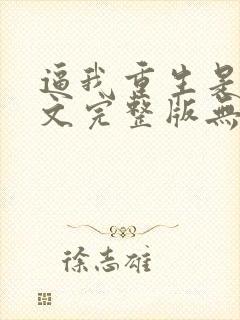 逼我重生是
文完整版無
徐志雄